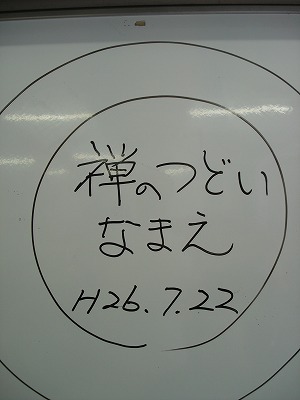 禅のつどい
なまえ
H26.7.22